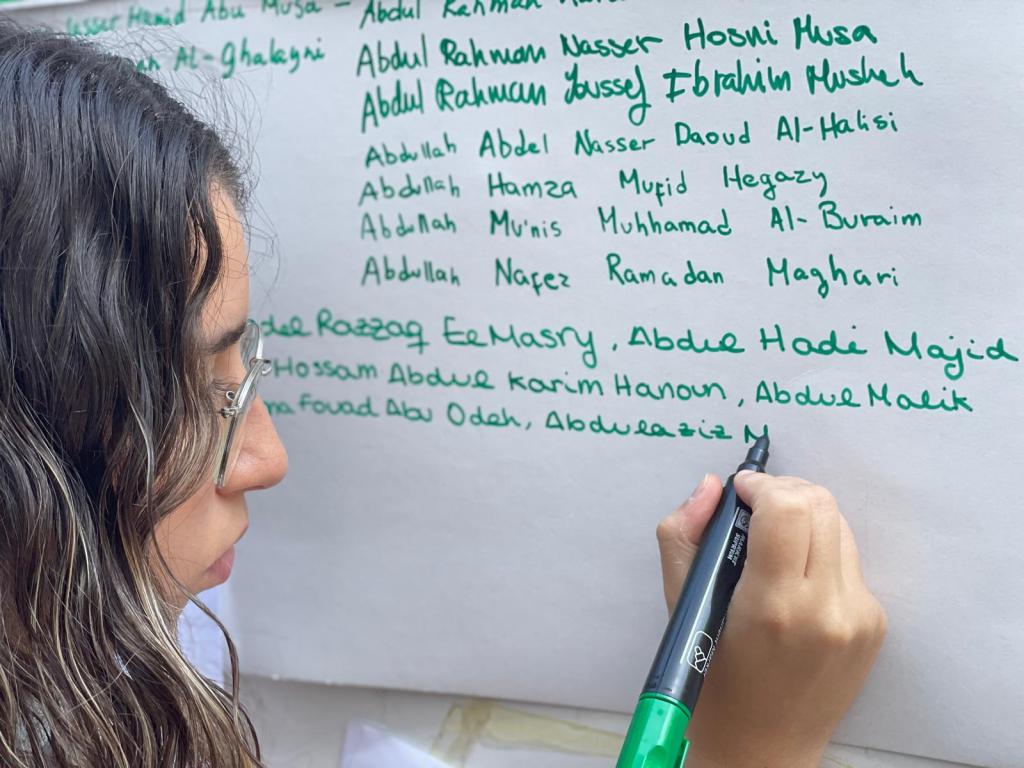 Hamid Abu Musa - Abdul Rahman
Al-Ghalagni Abdul Rahman Nasser Hosni Musa
Abdul Rahman Youssef Ibrahim Musheh
Abdullah Abdel Nasser Daoud Al-Halisi
Abdullah Hamza Mufid Hegazy
Abdullah Mu'nis Muhhamad Al-Buraim
Abdullah Nafez Ramadan Maghari
Razzaq El Masry, Abdul Hadi Majid
Hossam Abdul Karim Hanoun, Abdul Malik
Fouad Abu Odeh, Abdulaziz M